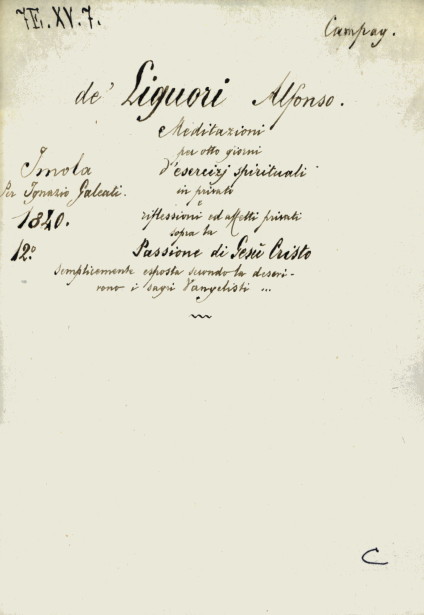 7E.XV.7.
Campag.
de' Liguori Alfonso.
Meditazioni
per otto giorni
Imola d'esercizj spirituali
Per Ignazio Galeati. in privato
e
1840. riflessioni ed affetti privati
sopra la
12.º Passione di Gesù Cristo
semplicemente esposta secondo la descri-
vono i sagri Vangelisti ...
C